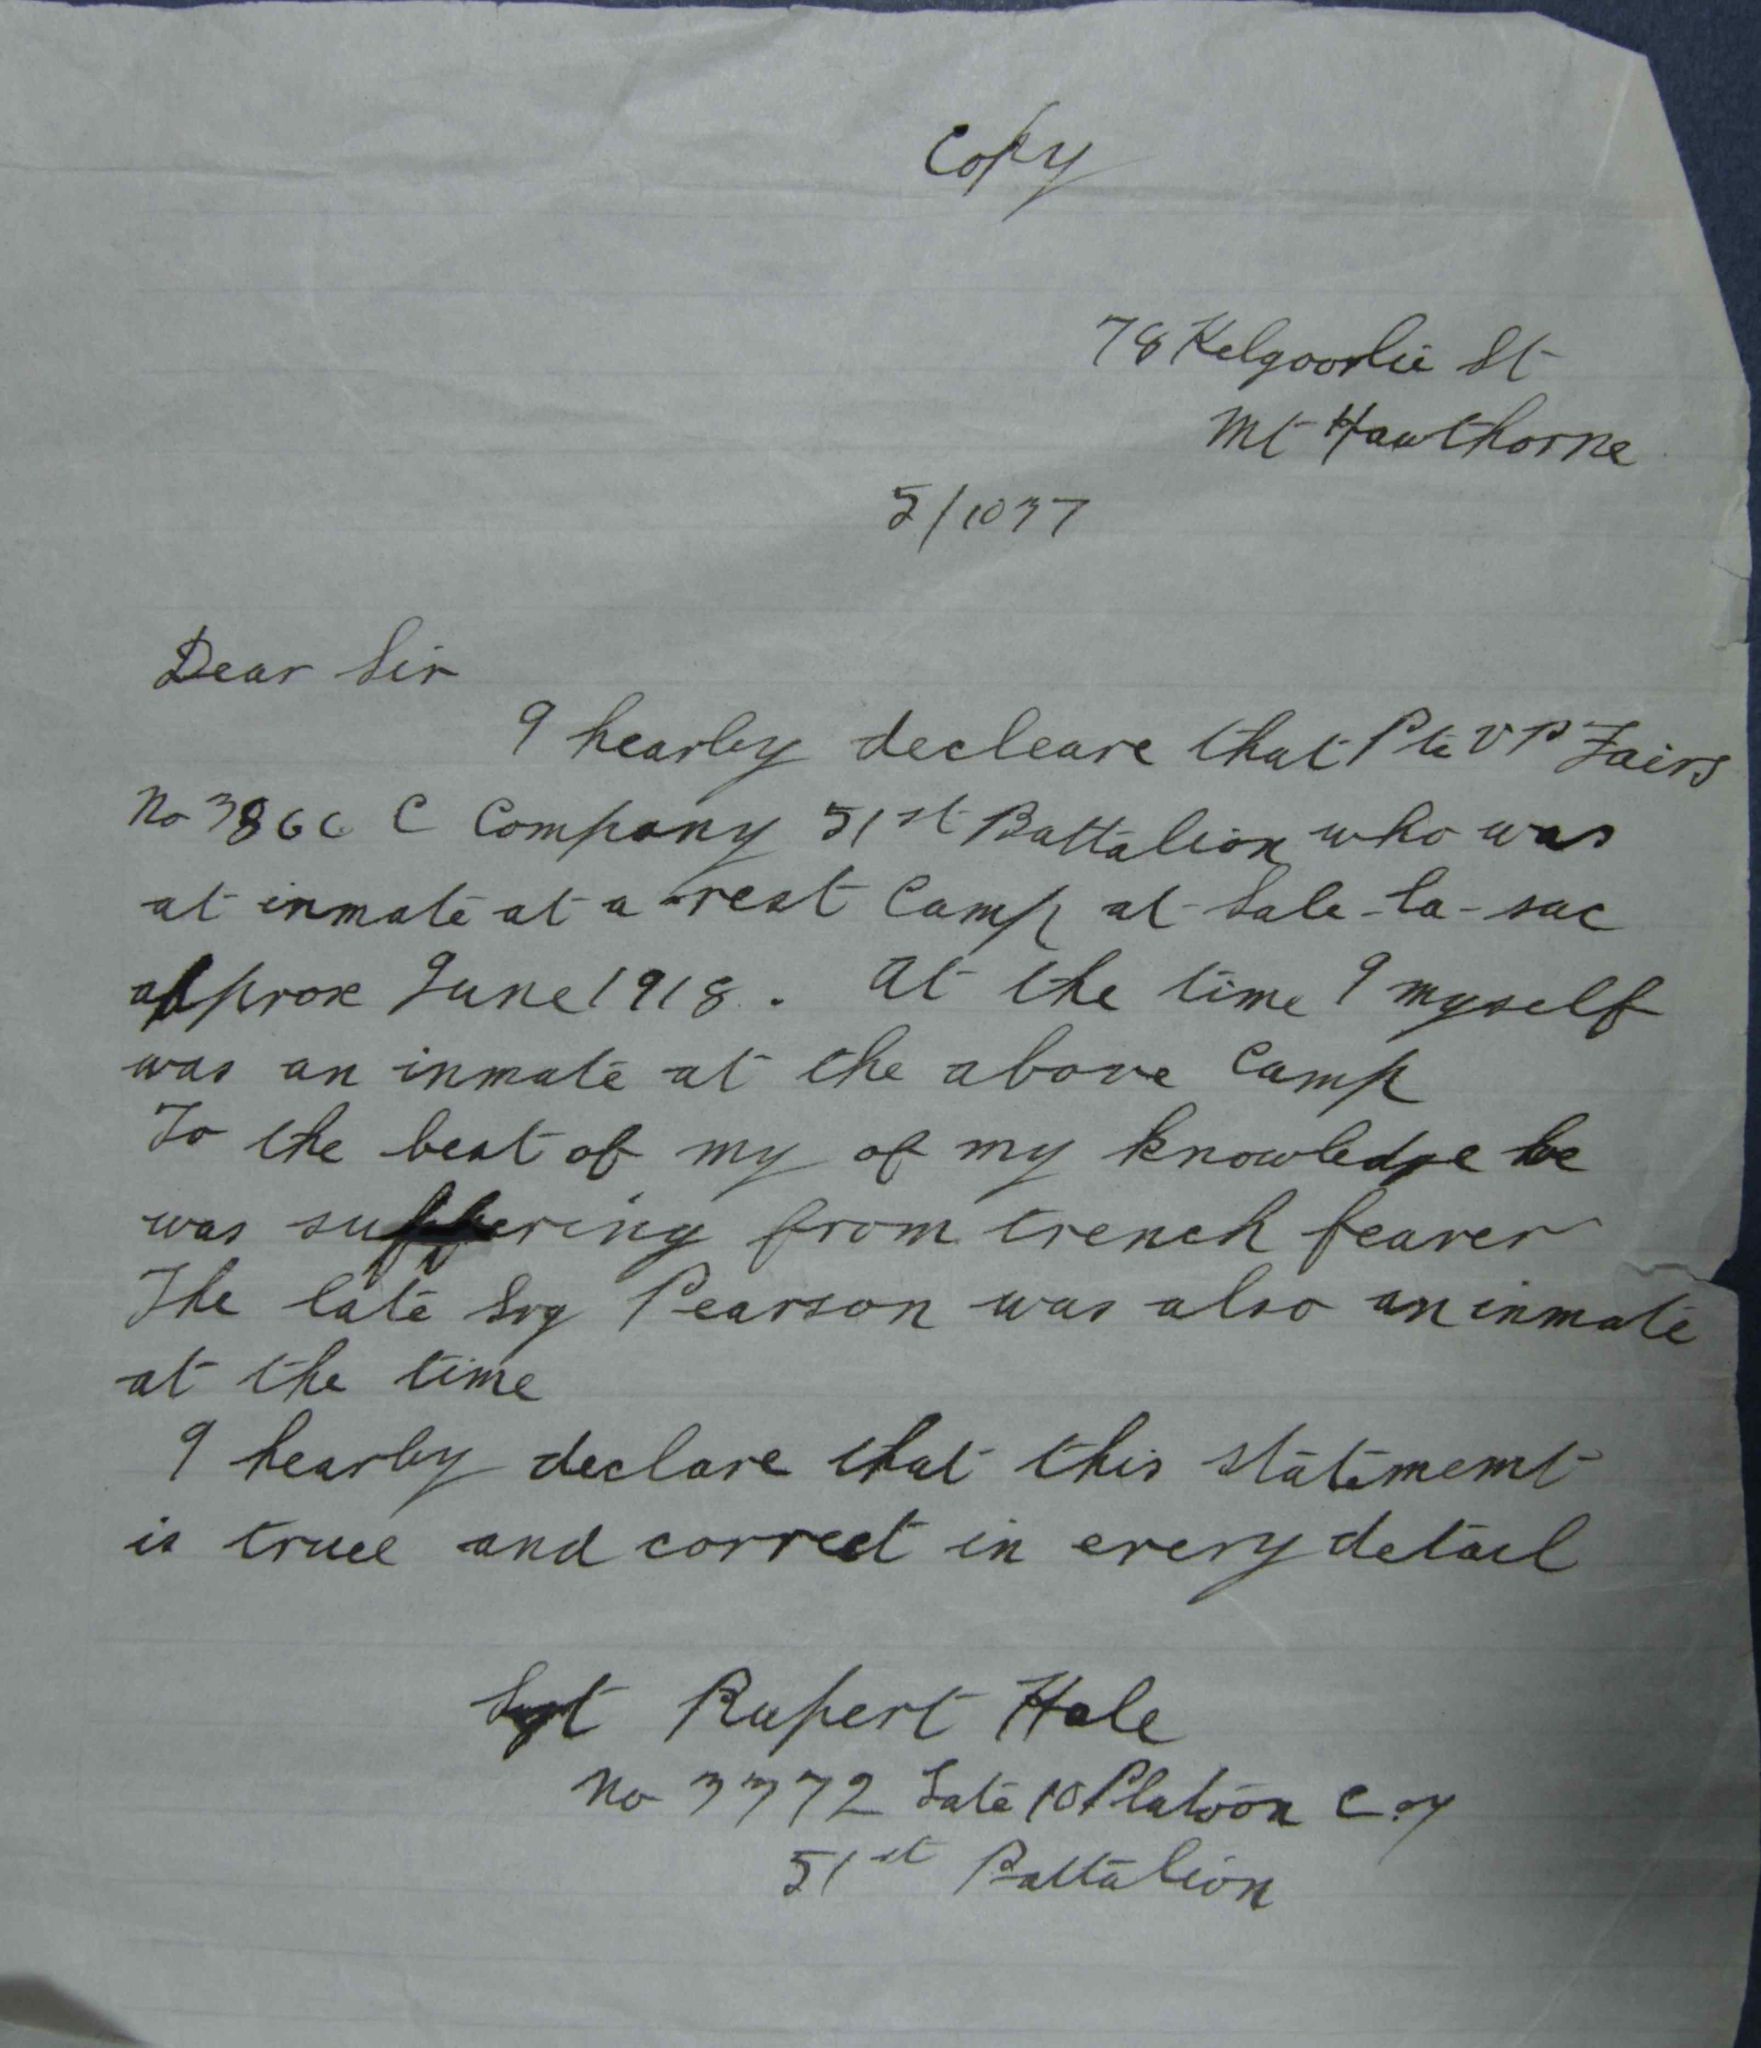 Copy
78 Kelgoorlie St
Mt Hawthorne
5/1037
Dear Sir
I hearby decleare that Pte V P Fairs
No 3866 C Company 51st Battalion who was
at inmate at a rest Camp at Sale-la-sac
approx June 1918. At the time I myself
was an inmate at the above Camp
To the best of my of my knowledge he
was suffering from trench feaver
The late Srg Pearson was also an inmate
at the time
I hearby declare that this statememt
is truee and correct in every detail
Sgt Rupert Hale
No 3372 Late 10 Platoon C oy
51st Battalion